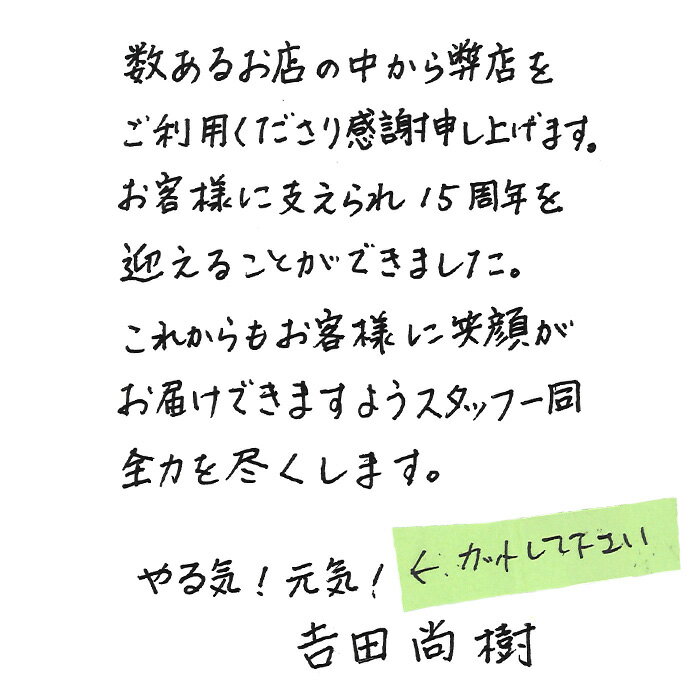 数あるお店の中から弊店を
ご利用くださり感謝申し上げます。
お客様に支えられ15周年を
迎えることができました。
これからもお客様に笑顔が
お届けできますようスタッフ一同
全力を尽くします。
やる気!元気!
←カットして下さい
𠮷田尚樹